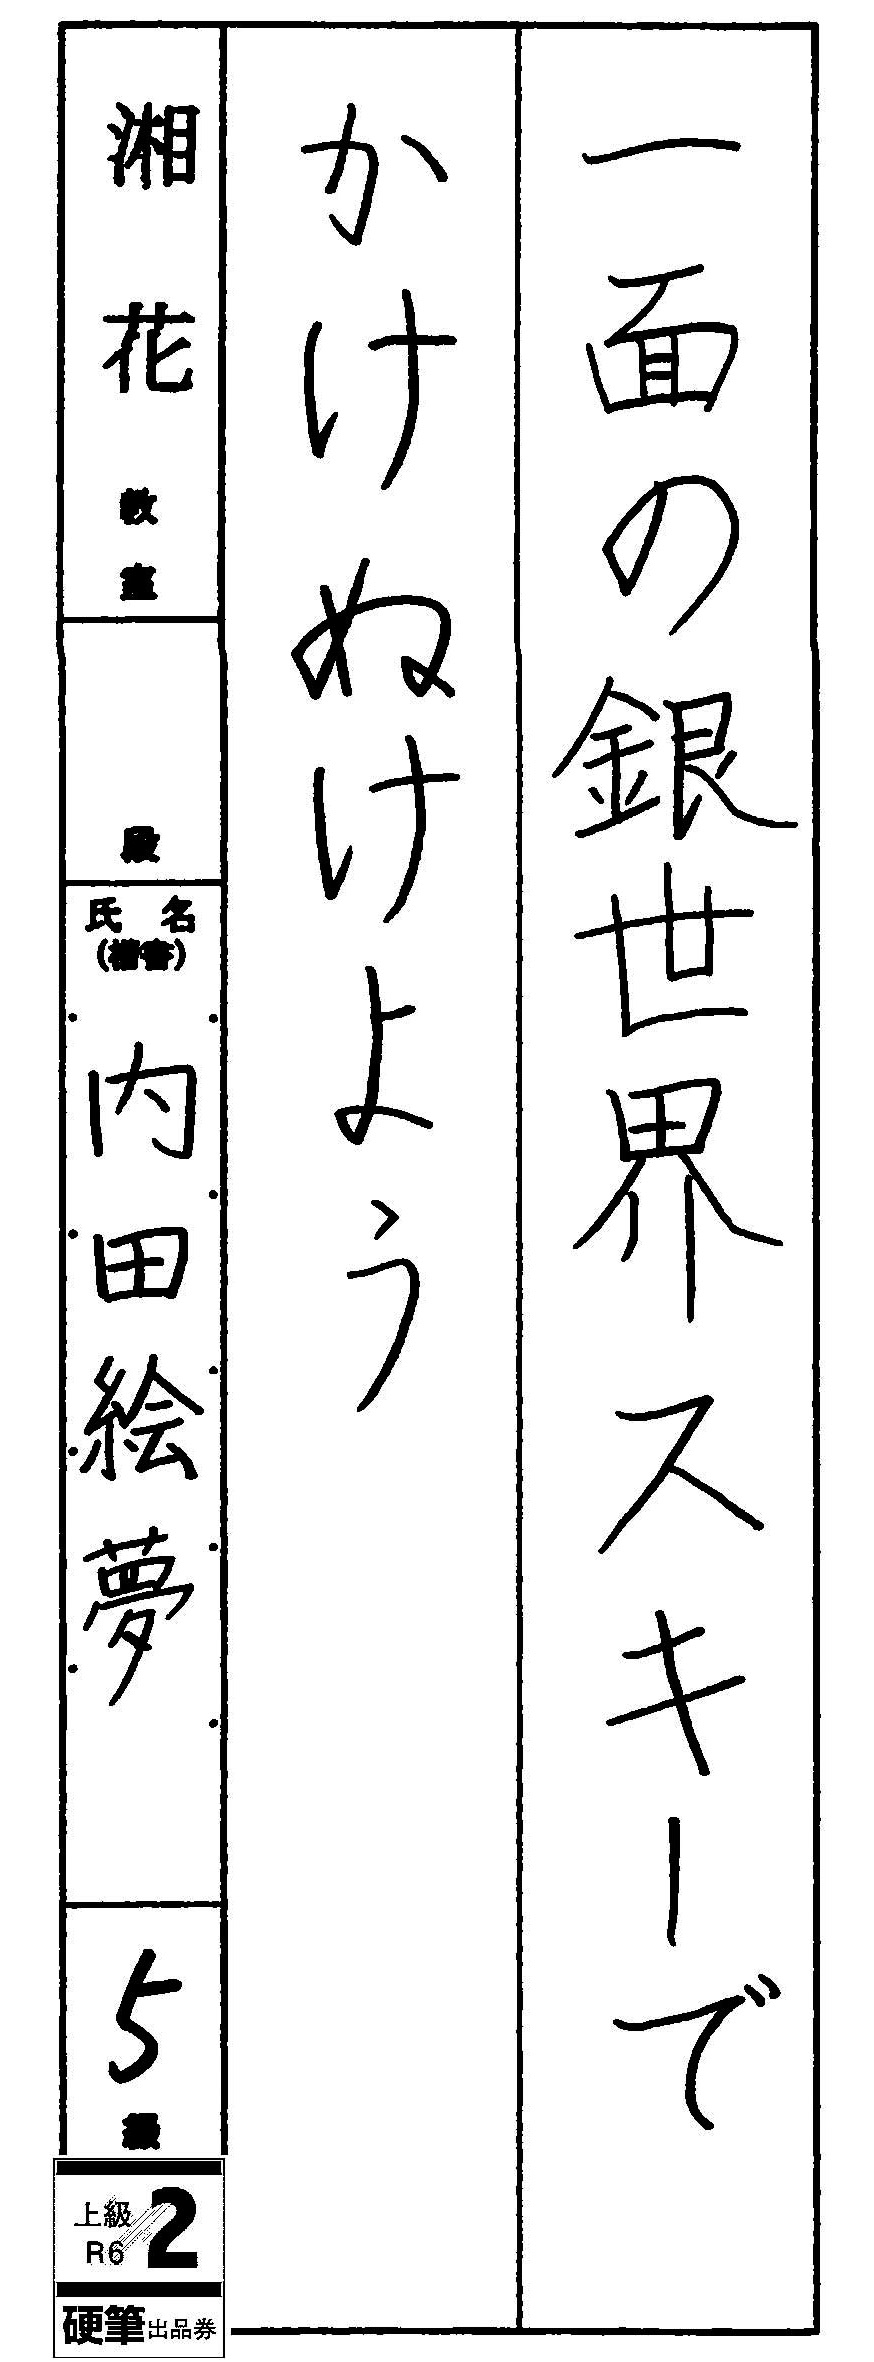 一面の銀世界スキーで
かけぬけよう
湘花教室
段
氏名
(楷書)
内田絵夢
5級
上級
R6
2
硬筆出品券